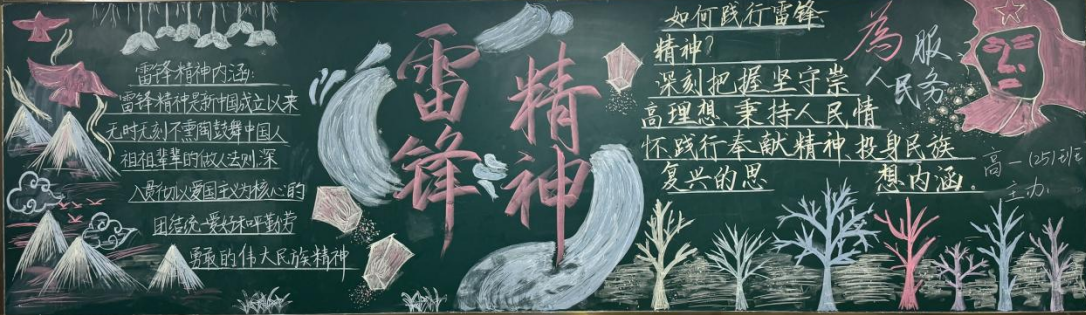 雷锋精神内涵:
雷锋精神是新中国成立以来
无时无刻不熏陶鼓舞中国人
祖祖辈辈的做人法则,深
入贯彻以爱国主义为核心的
团结统一爱好和平勤劳
勇敢的伟大民族精神
雷锋
精神
如何践行雷锋
精神?
深刻把握坚守崇
高理想、秉持人民情
怀、践行奉献精神、投身民族
复兴的思 想内涵。
為
人民
服务
高一(25)班
主办